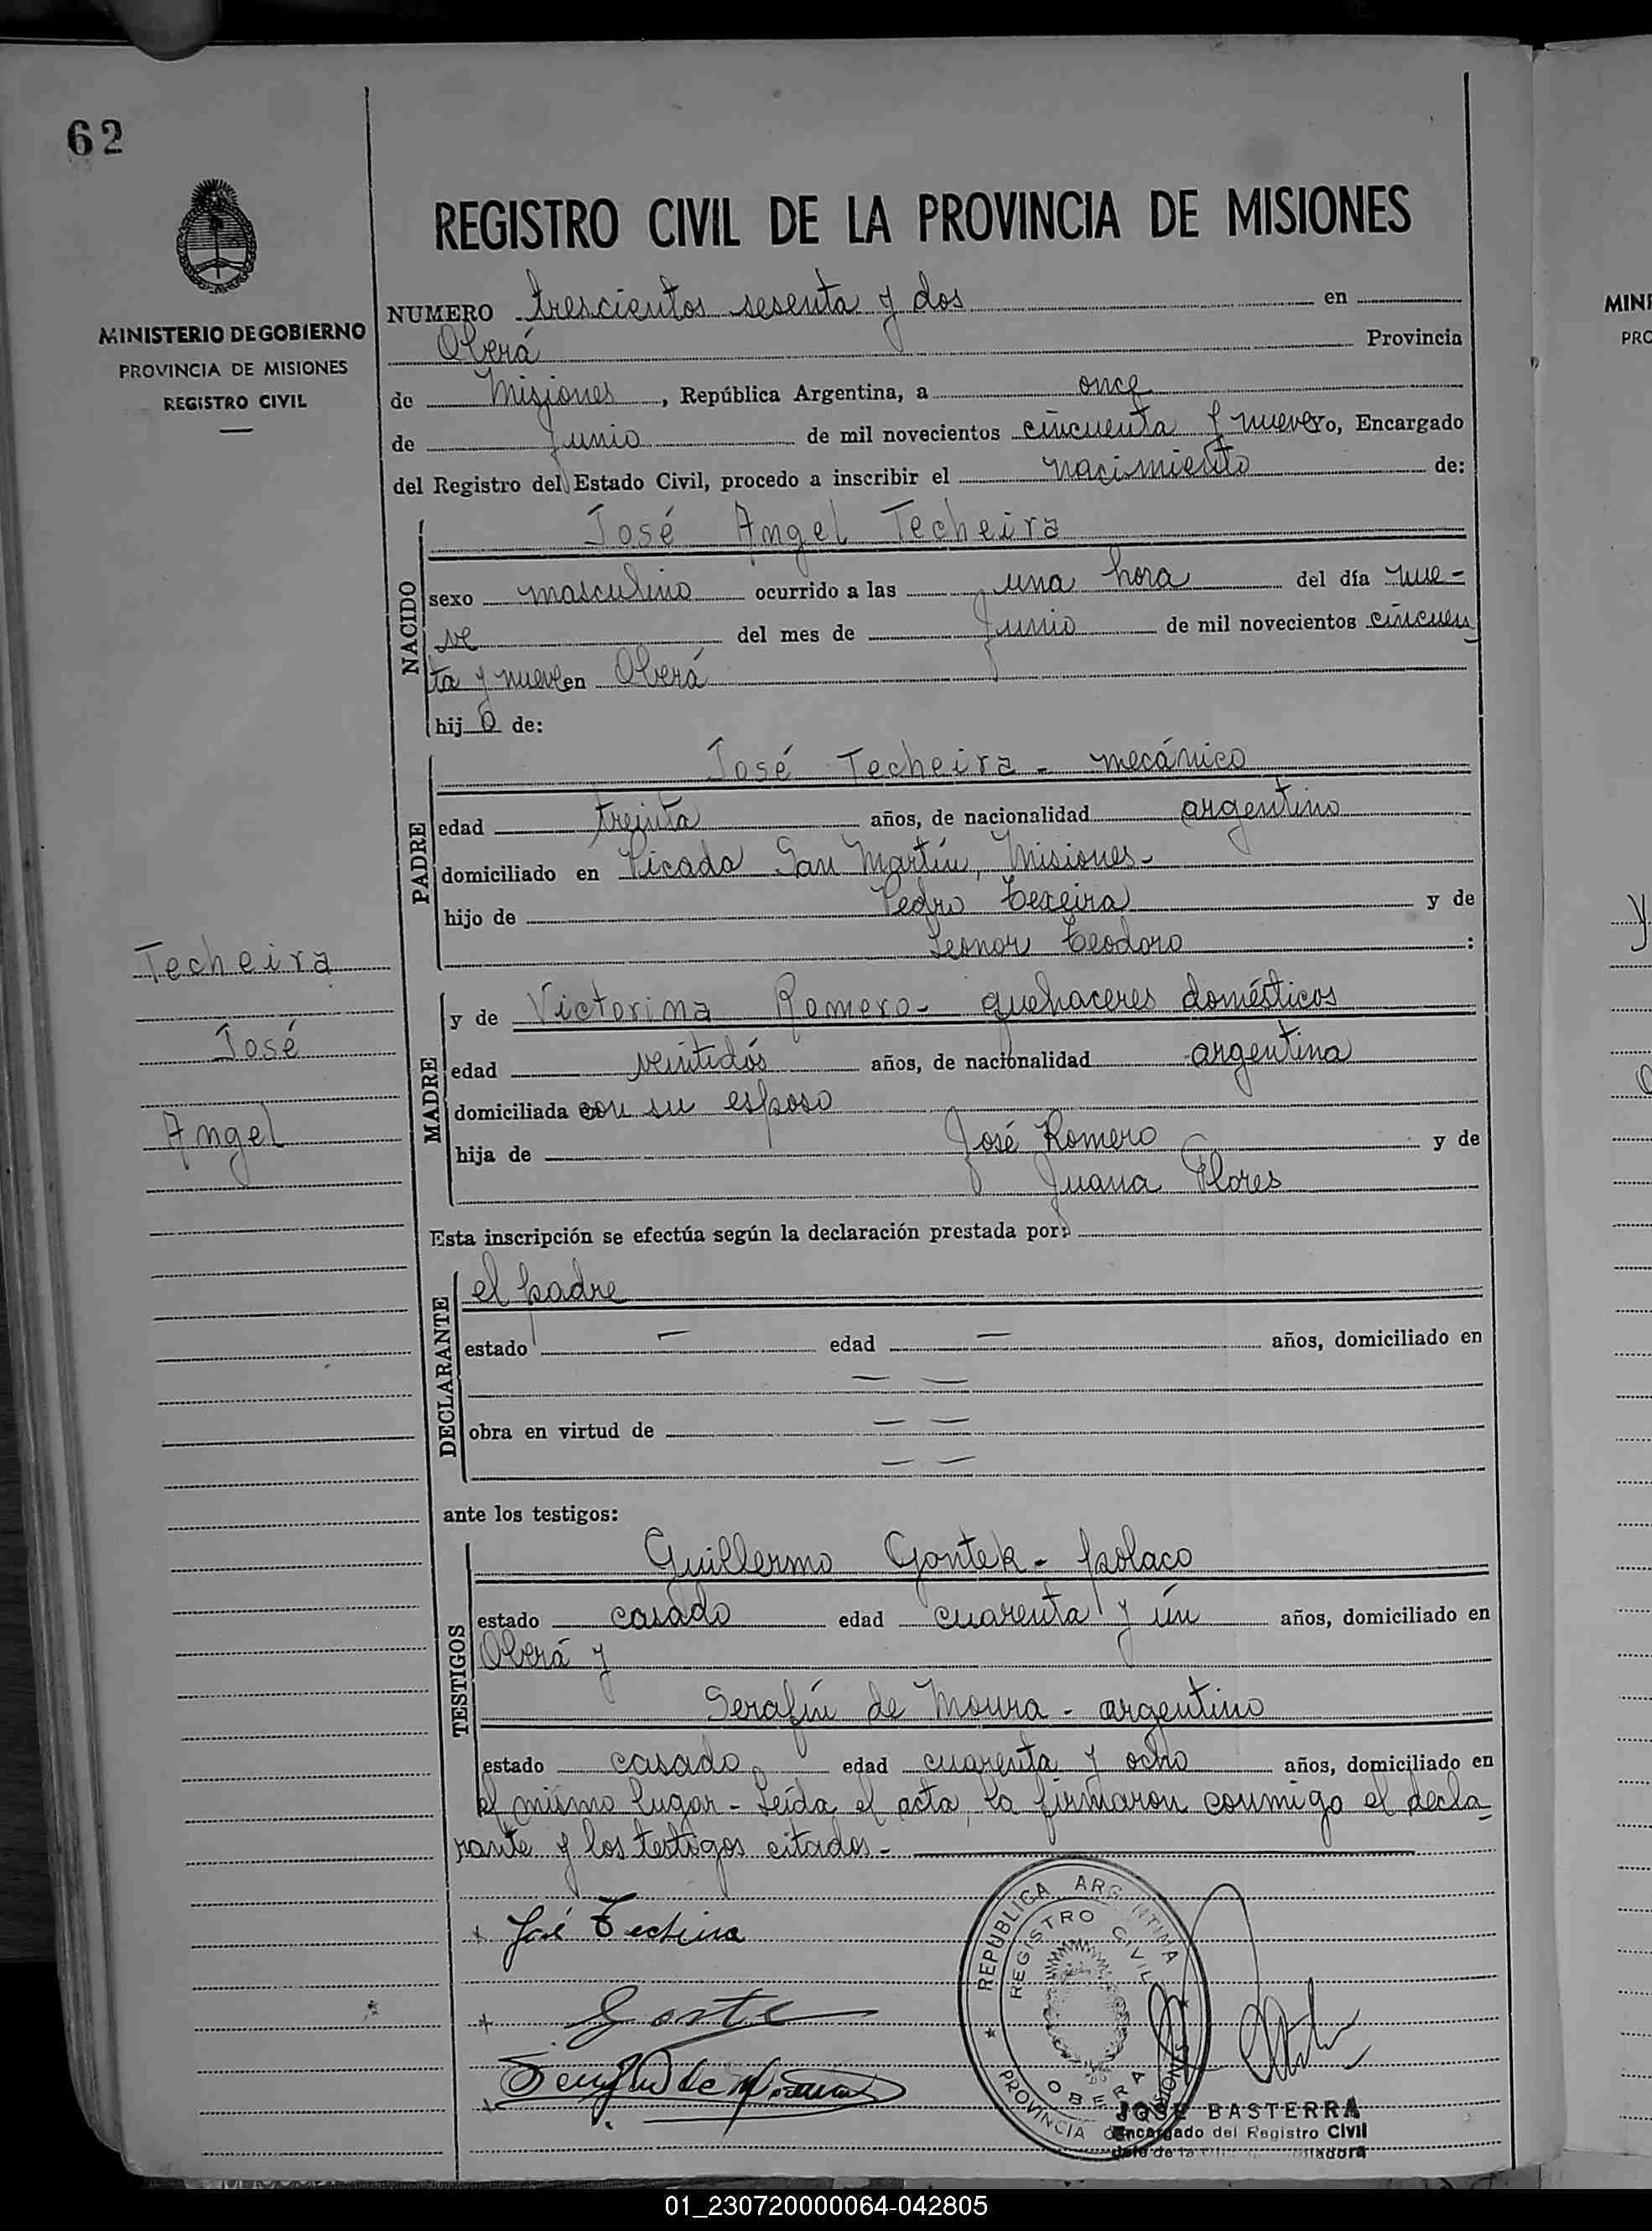 62
REGISTRO CIVIL DE LA PROVINCIA DE MISIONES
MINISTERIO DE GOBIERNO
PROVINCIA DE MISIONES
REGISTRO CIVIL
NUMERO trescientos sesenta y dos en
Oberá Provincia
de Misiones, República Argentina, a once
de Junio de mil novecientos cincuenta y nueve yo, Encargado
del Registro del Estado Civil, procedo a inscribir el nacimiento de:
NACIDO
José Angel Techeira
sexo masculino ocurrido a las una hora del día nue-
ve del mes de Junio de mil novecientos cincuen
ta y nueve en Oberá
hijo de:
PADRE
José Techeira - mecánico
edad treinta años, de nacionalidad argentino
domiciliado en Picada San Martín, Misiones-
hijo de Pedro Texeira y de
Leonor Teodoro :
Techeira
José
Angel
MADRE
y de Victorina Romero- quehaceres domésticos
edad veintidós años, de nacionalidad argentina
domiciliada con su esposo
hija de José Romero y de
Juana Flores
Esta inscripción se efectúa según la declaración prestada por:
DECLARANTE
el padre
estado — edad — años, domiciliado en
— —
obra en virtud de — —
— —
ante los testigos:
TESTIGOS
Guillermo Gontek - polaco
estado casado edad cuarenta y ún años, domiciliado en
Oberá y
Serafín de Moura - argentino
estado casado edad cuarenta y ocho años, domiciliado en
el mismo lugar - Leída el acta, la firmaron conmigo el decla
rante y los testigos citados -
José Techeira
REPUBLICA ARGENTINA
REGISTRO CIVIL
OBERA
PROVINCIA DE MISIONES
Serafín de Moura
JOSE BASTERRA
Encargado del Registro Civil
Jefe de la
01_230720000064-042805